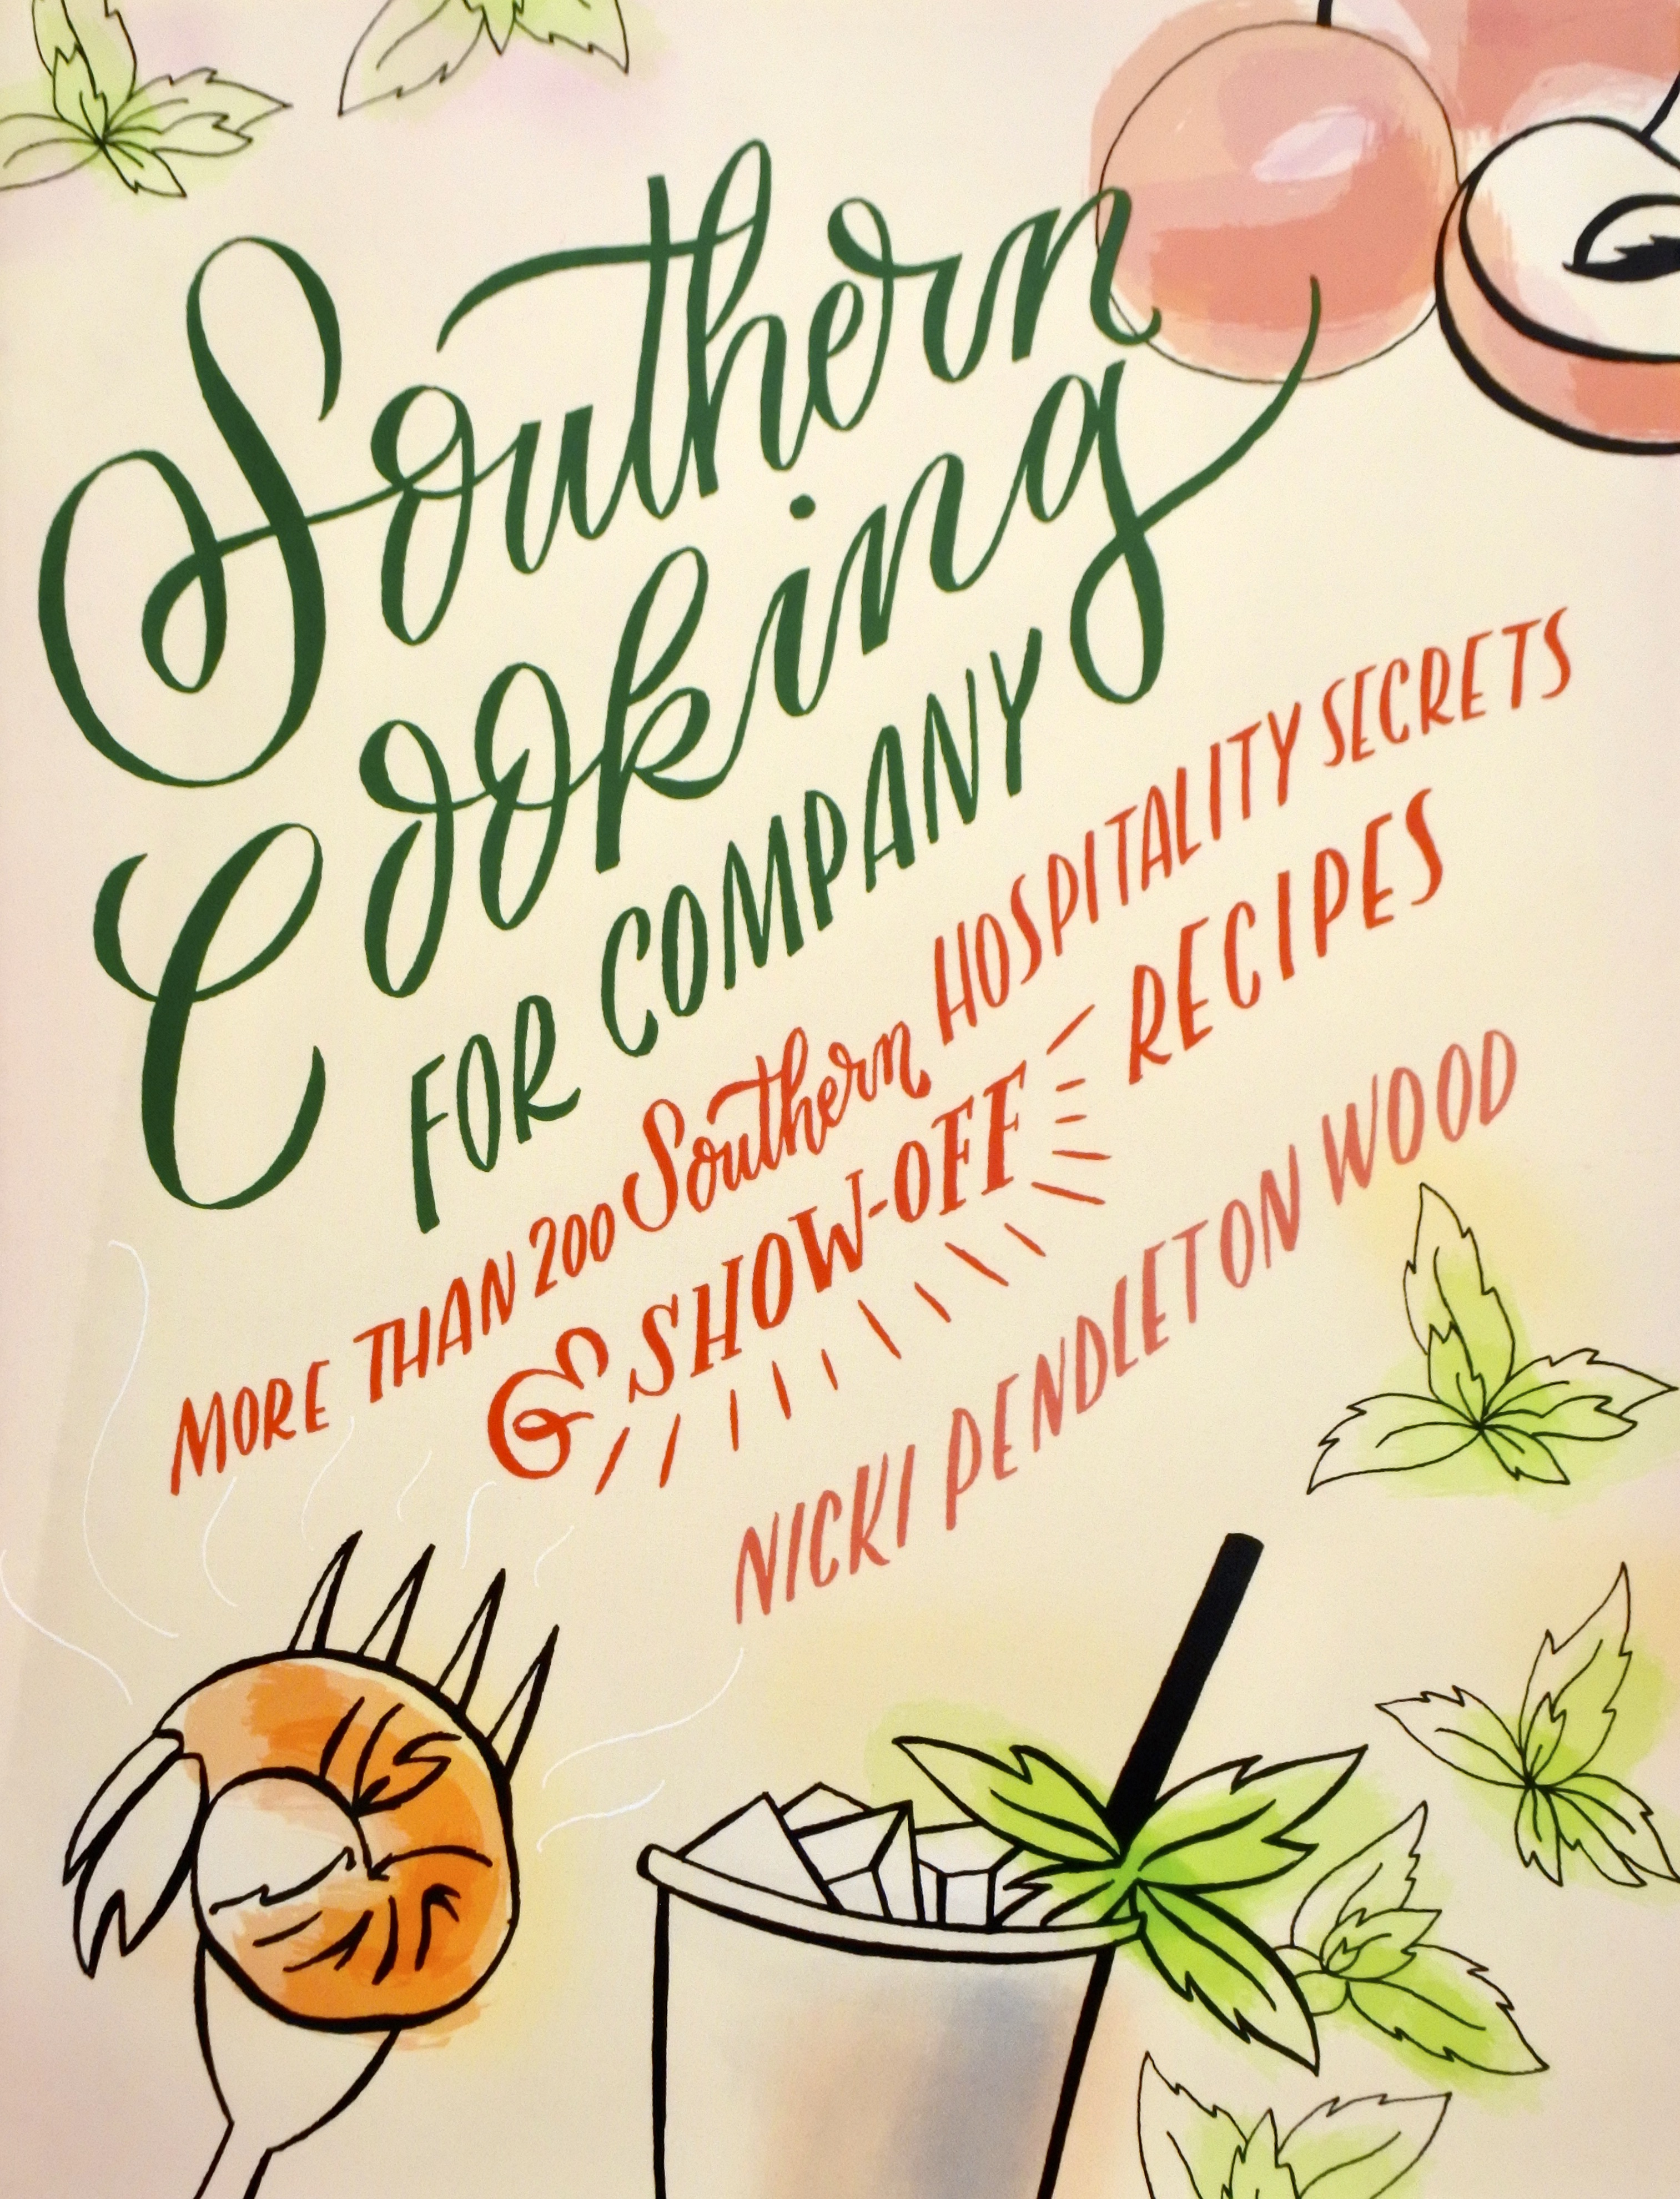 Southern
Cooking
FOR COMPANY
MORE THAN 200 Southern HOSPITALITY SECRETS
& SHOW-OFF RECIPES
NICKI PENDLETON WOOD